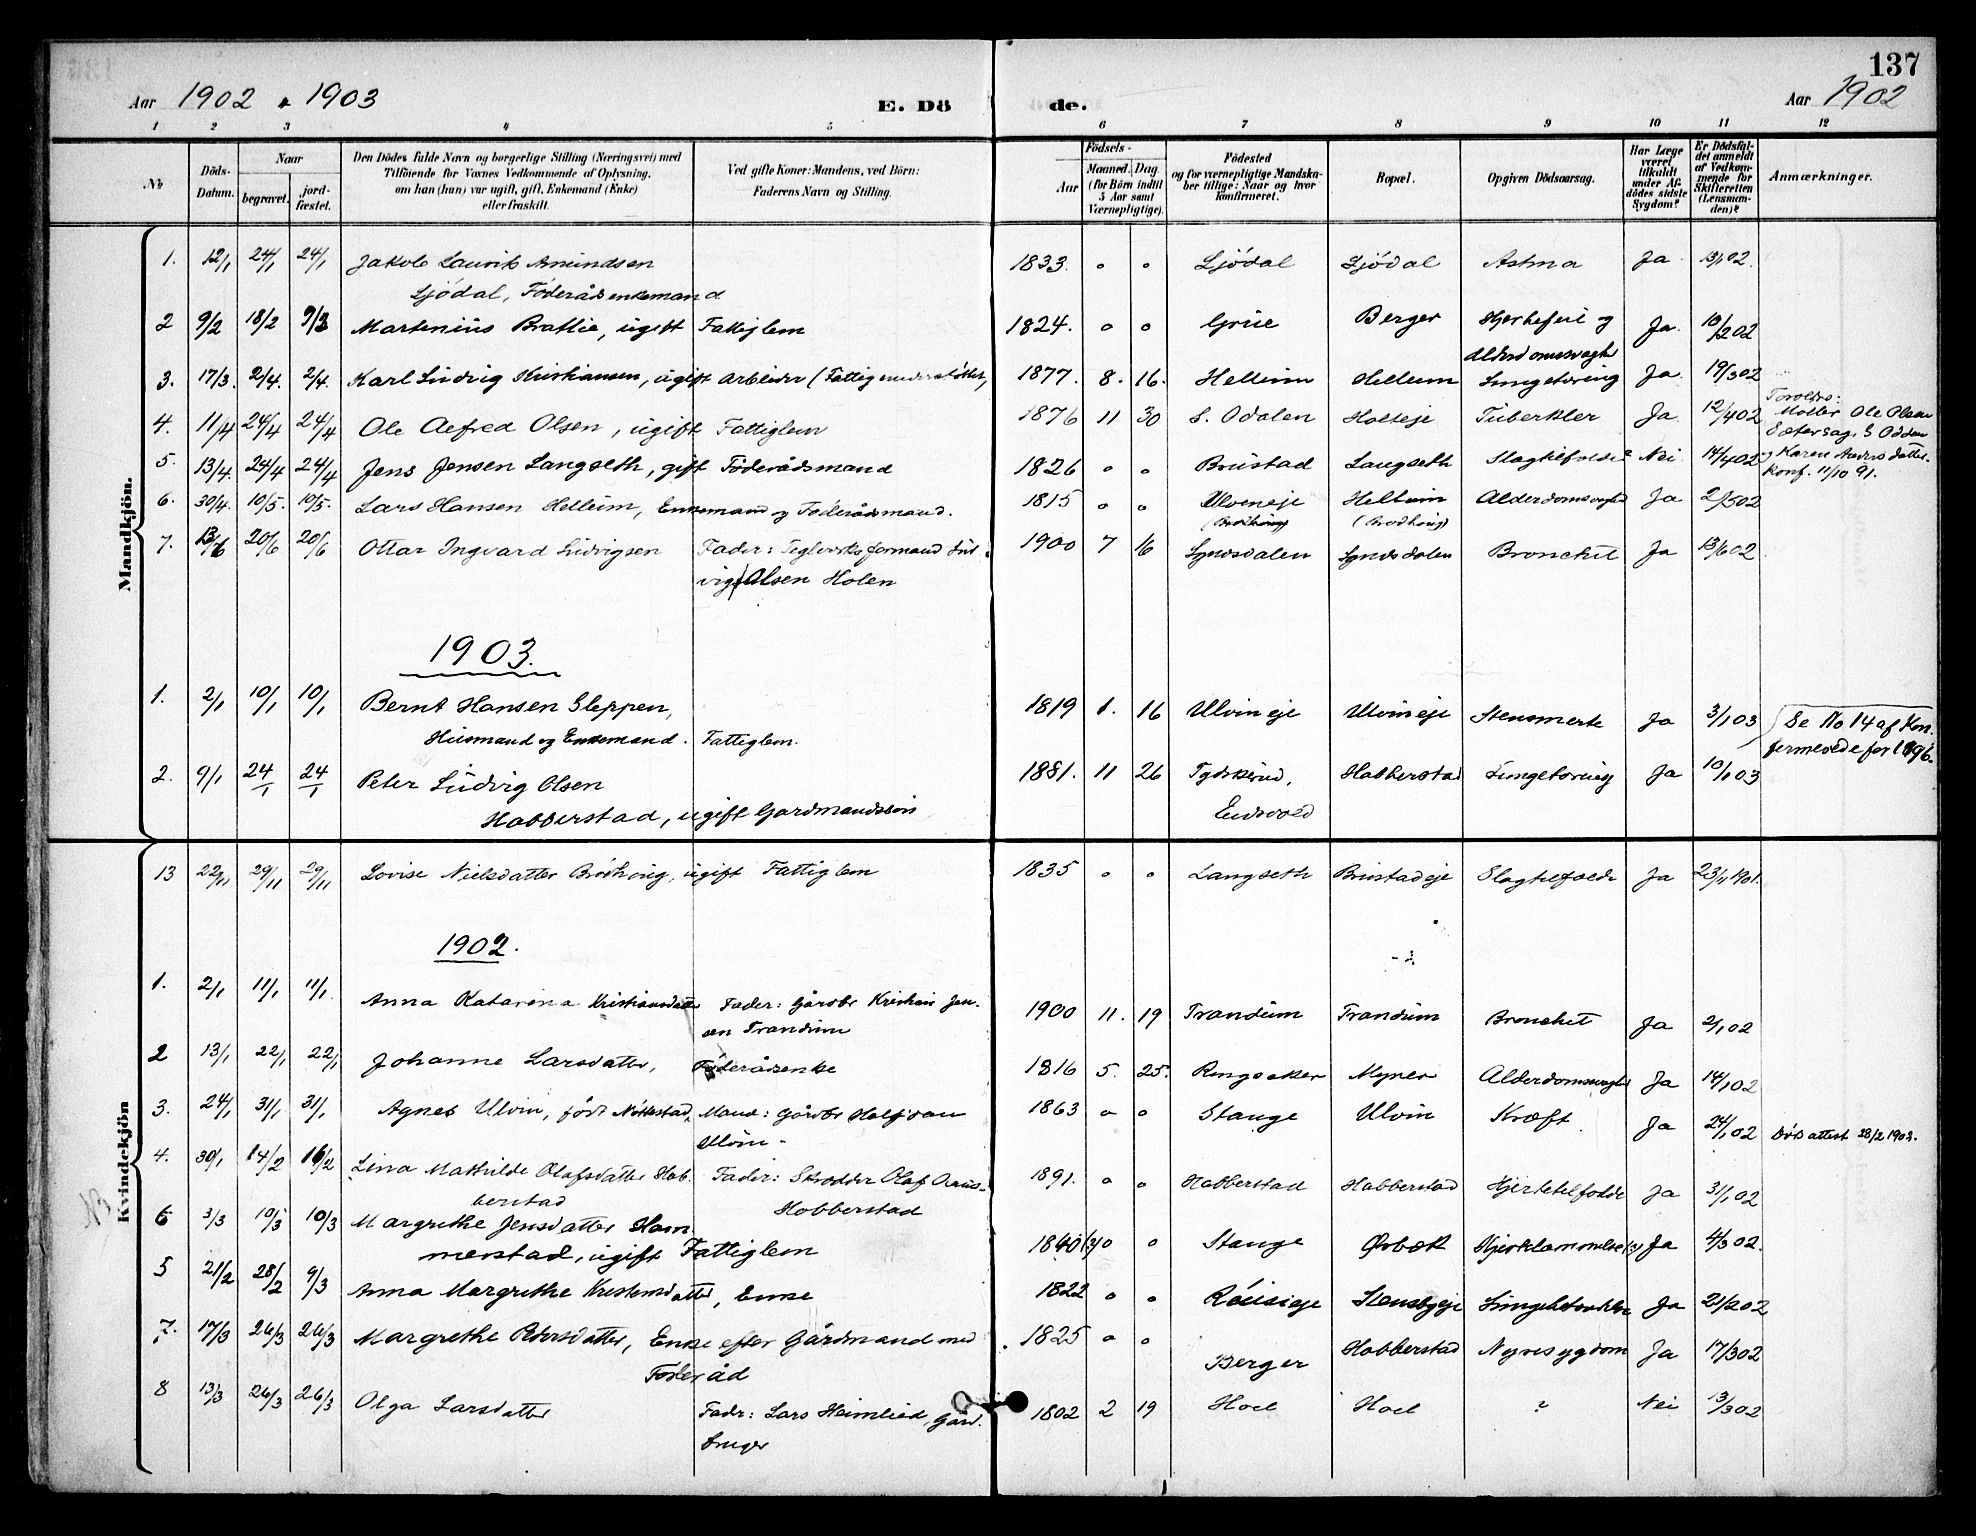 137
Aar 1902 & 1903 E. Dö de. Aar 1902
1 2 3 4 5 6 7 8 9 10 11 12
No. Döds-Datum. Naar begravet. jord-fæstet. Den Dödes fulde Navn og borgerlige Stilling (Næringsvei) med Tilföiende for Voxnes Vedkommende af Oplysning, om han (hun) var ugift, gift, Enkemand (Enke) eller fraskilt. Ved gifte Koner: Mandens, ved Börn: Faderens Navn og Stilling. Födsels- Aar Maaned. Dag. (for Börn indtil 5 Aar samt Værnepligtige). Födested og for værnepligtige Mandskaber tillige: Naar og hvor konfirmeret. Bopæl. Opgiven Dödsaarsag. Har Læge været tilkaldt under Afdödes sidste Sygdom? Er Dödsfaldet anmeldt af Vedkommende for Skifteretten (Lensmanden)? Anmærkninger.
Mandkjön.
1. 12/1 24/1 24/1 Jakob Laurits Amundsen 1833. " " Sjödal Sjödal Astma Ja 13/1 02.
Sjödal, Föderådsenkemand
2 9/2 18/2 9/3 Martenius Brattlie, ugift Fattiglem 1824. " " Grue Berger Hjertefeil og Ja. 10/2 02
Alderdomssvaghed
3. 17/3. 2/4. 2/4. Karl Ludvig Kristiansen, ugift Arbeider (Fattigunderstöttet) 1877. 8. 16. Hellum Hellum Lungetæring Ja 19/3 02
4. 11/4 24/4 24/4 Ole Alfred Olsen, ugift Fattiglem 1876 11 30 S. Odalen Holteeje Tuberkler Ja. 12/4 02 Foreldre:
Moller Ole Olsen
Sætersag, S Odalen
5. 13/4. 24/4 24/4 Jens Jensen Langseth, gift Föderådsmand 1826 " " Brustad Langseth Slagtilfælde? Nei 14/4 02 og Karen Andersdatter
Konf. 11/10 91.
6. 30/4. 10/5. 10/5. Lars Hansen Hellum, Enkemand og Föderådsmand. 1815 " " Ulvineje Hellum Alderdomssvaghed Ja 2/5 02
(Brödhaug) (Brodhaug)
7. 13/6 20/6 20/6 Ottar Ingvard Ludvigsen Fader: Teglverksformand Lud- 1900 7 16 Syndsdalen Syndsdalen Bronchit Ja 13/6 02
vig Olsen Holen
1903.
1. 2/1 10/1 10/1 Bernt Hansen Sleppen, 1819 1. 16 Ulvineje Ulvineje Stensmerte Ja 3/1 03 Se No 14 af Kon-
Husmand og Enkemand. Fattiglem. fermerede for 1896.
2. 9/1 24/1 24/1 Peter Ludvig Olsen 1881. 11 26 Tyskerud, Habberstad Lungetæring Ja 10/1 03
Habberstad, ugift Gardmandssön Eidsvold
Kvindekjön
13 22/11 29/11 29/11 Lovise Nielsdatter Brödhoug, ugift Fattiglem 1835 " " Langseth Brustadeje Slagtilfælde Ja 23/11 1901.
1902.
1. 2/1 11/1 11/1. Anna Katarina Kristiansdatter Fader: Gårdbr Kristian Jen- 1900 11. 19 Trandum Trandum Bronchit Ja 2/1 02
sen Trandum
2 13/1 22/1 22/1 Johanne Larsdatter, Föderådsenke 1816 5. 25. Ringsaker Myrer Alderdomssvaghed Ja 14/1 02
3. 24/1 31/1 31/1 Agnes Ulvin, född Nöttestad, Mand: Gårdbr Halfdan 1863 " " Stange Ulvin Kræft Ja 24/1 02 Dödsattest 28/2 1903.
Ulvin -
4. 30/1 14/2 16/2 Lina Mathilde Olafsdatter Hab- Fader: Skrædder Olaf Aanus- 1891. " " Habberstad Habberstad Hjertetilfælde Ja 31/1 02
berstad Habberstad
6 3/3 10/3 10/3 Margrethe Jensdatter Ham- 1840(?) " " Stange Örbæk Hjerklammelse(?) Ja 4/3 02.
merstad, ugift Fattiglem
5 21/2 28/2 9/3 Anna Margrethe Kristensdatter, Enke 1822 " " Stensbyeje Ja 21/2 02
7. 17/3 26/3 26/3 Margrethe Petersdatter, Enke efter Gårdmand med 1825 " " Berger Habberstad Nyresygdom Ja 17/3 02
Föderåd
8 13/3 26/3 26/3 Olga Larsdatter Fadr: Lars Heimlied, Gård- 1802 2 19 Hoel Hoel ? Nei 13/3 02
bruger